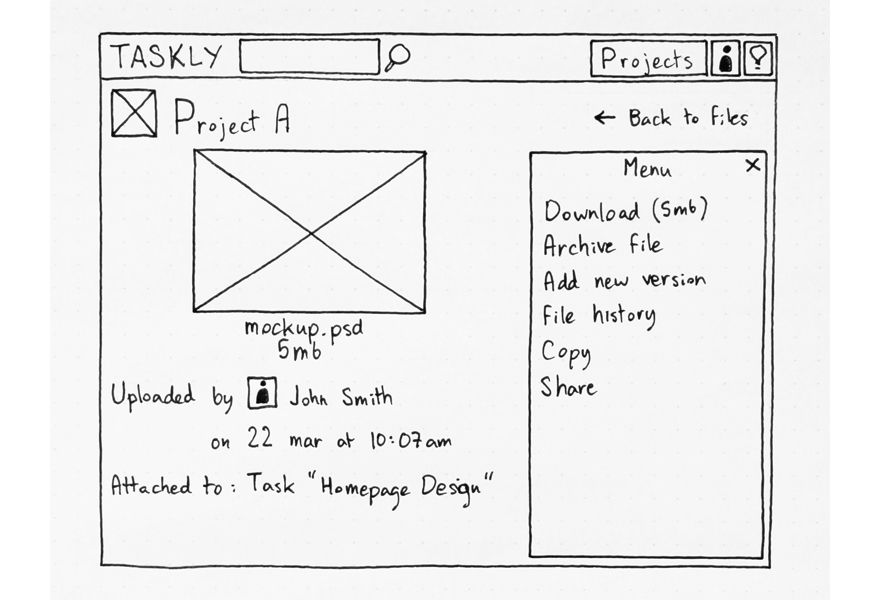 TASKLY
Projects
Project A
← Back to files
mockup.psd
5mb
Uploaded by John Smith
on 22 mar at 10:07am
Attached to: Task "Homepage Design"
Menu ×
Download (5mb)
Archive file
Add new version
File history
Copy
Share